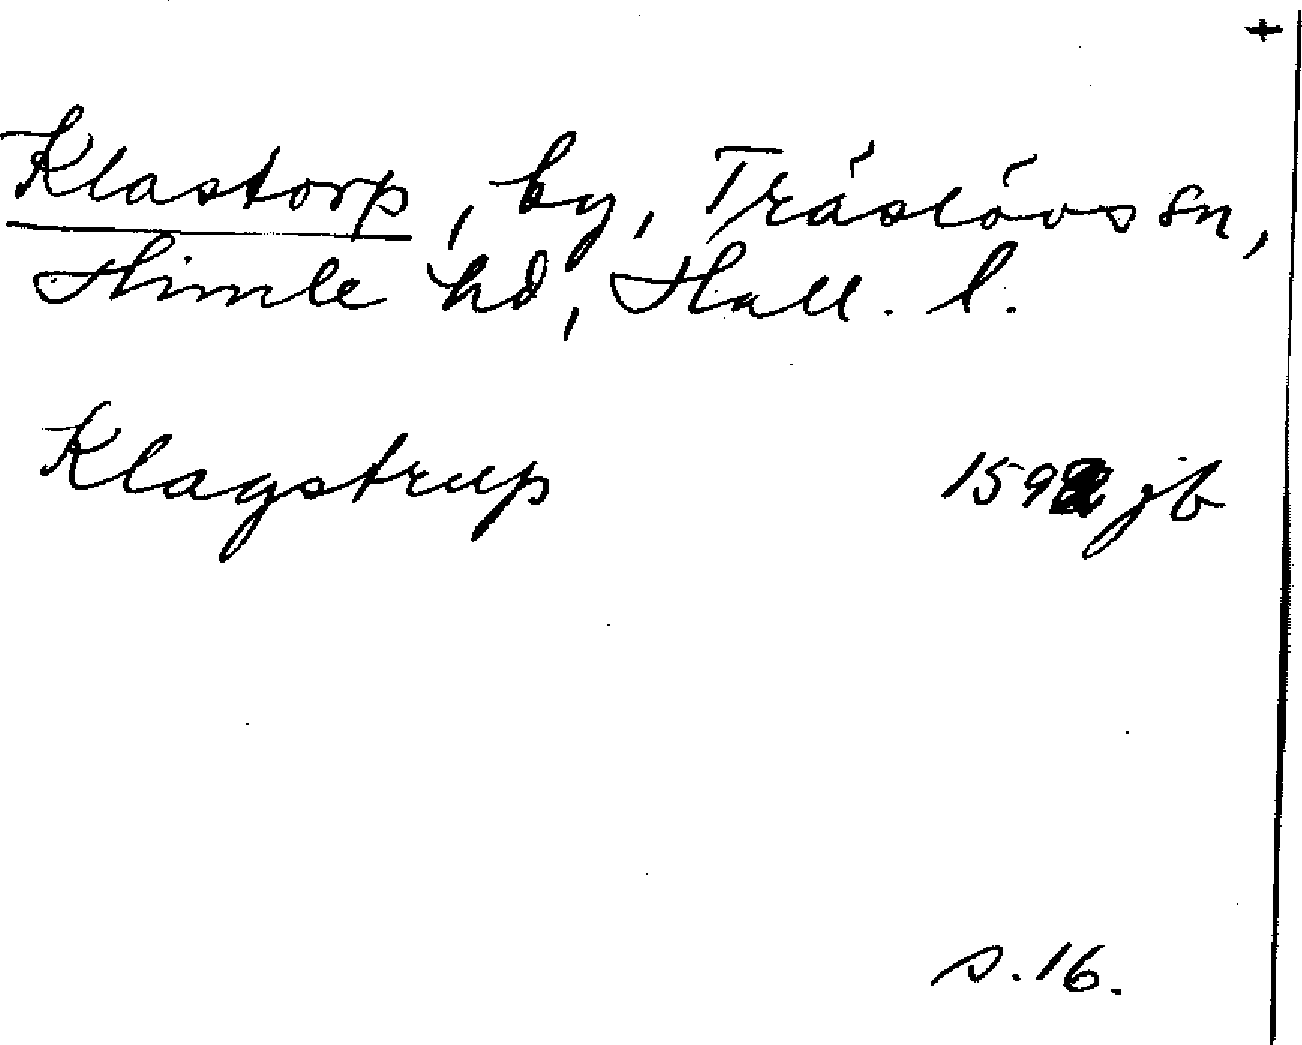 +
Klastorp, by, Träslövs sn,
Himle hd, Hall. l.
Klagstrup 1592 jb
s. 16.